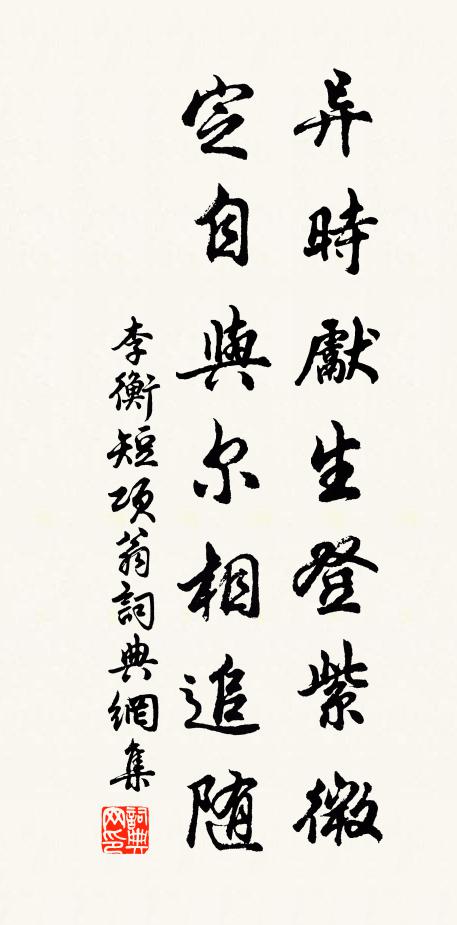 异時獻生登紫微
定自與尔相追随
李衡短項翁詞典網集
詞典网印